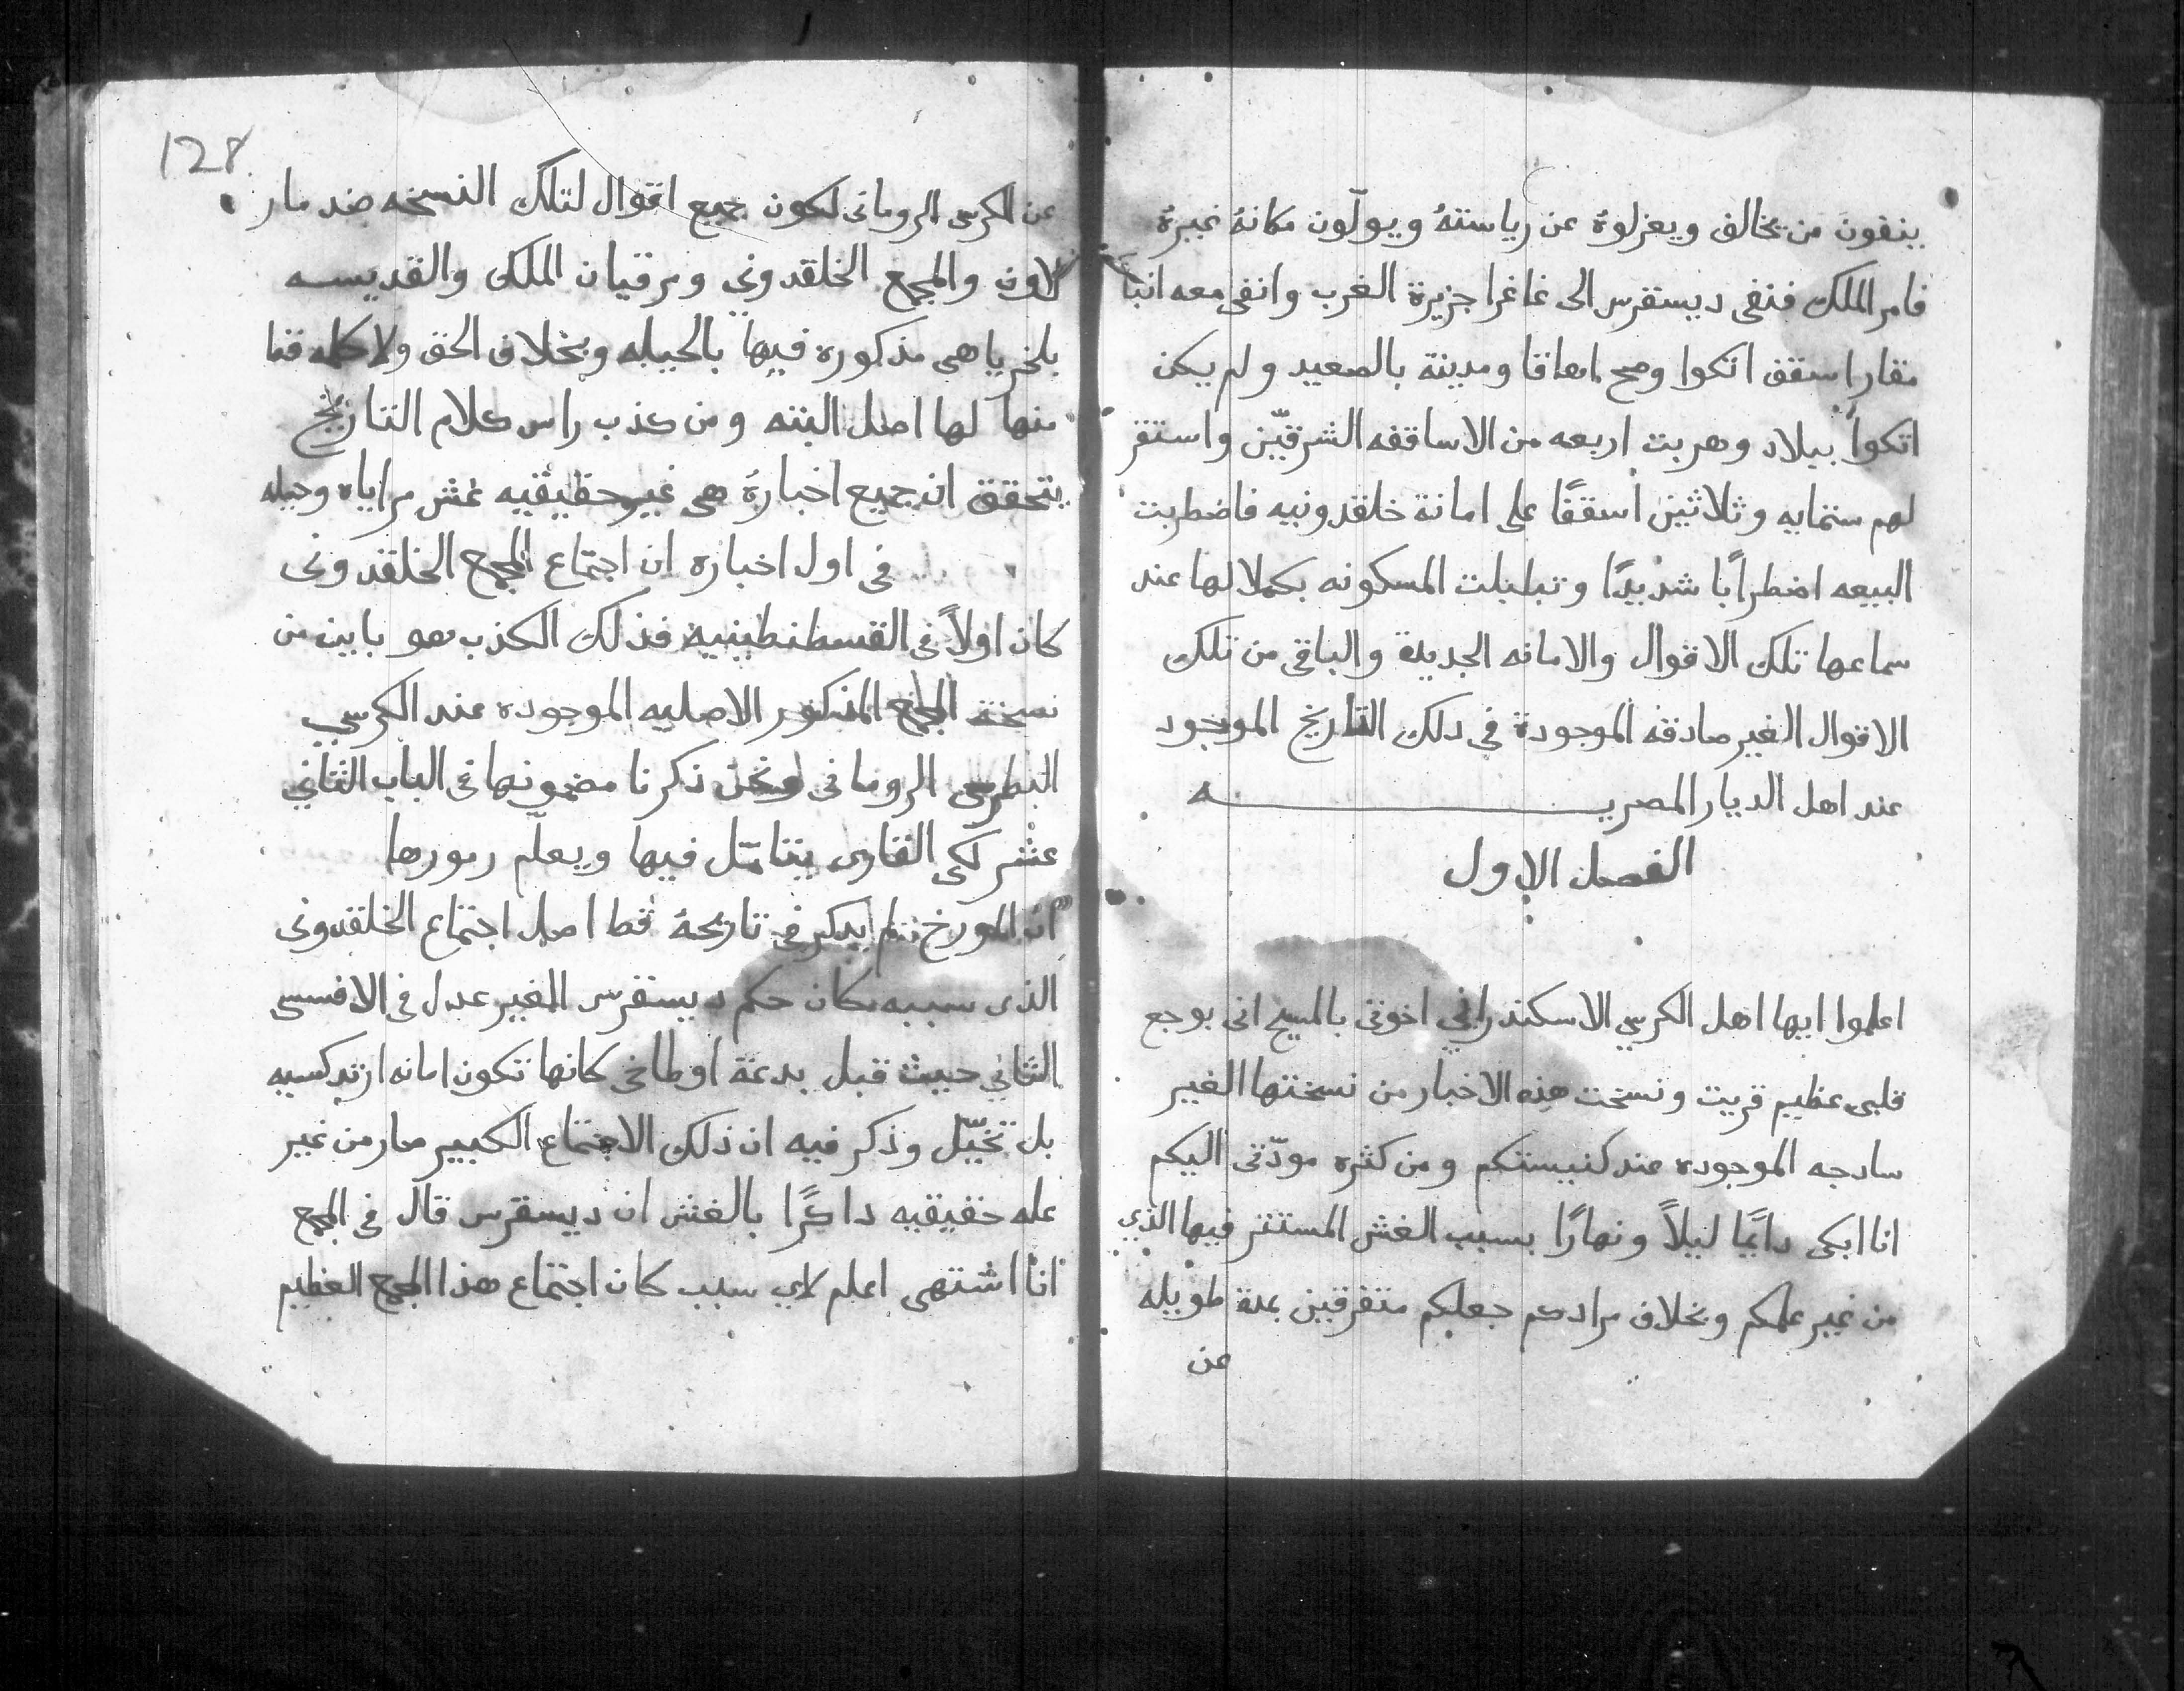 ينفون من يخالف ويعزلوهُ عن رياستهُ ويولّون مكانهُ غيرهُ
فامر الملك فنفى ديسقرس الى غاغرا جزيرة الغرب وانفى معه انبا
مقار اسقف اتكوا وصح ومدينة بالصعيد ولم يكن
اتكوا ببلاد وهربت اربعه من الاساقفه الشرقيّن واستقر
لهم ستمايه وثلاثين اسقفًا على امانة خلقدونيه فاضطربت
البيعه اضطرابًا شديدًا وتبلبلت المسكونه بكملا لها عند
سماعها تلك الاقوال والامانه الجديدة والباقى من تلك
الاقوال الغير صادقه الموجودة في دلك التاريخ الموجود
عند اهل الديار المصريـــــه
الفصل الاول
اعلموا ايها اهل الكرسي الاسكندراني اخوتى بالمسيح انى بوجع
قلبى عظيم قريت ونسخت هذه الاخبار من نسختها الغير
سادجه الموجوده عند كنيستكم ومن كثره مودّتى اليكم
انا ابكى دايمًا ليلاً ونهارًا بسبب الغش المستتر فيها الذي
من غير علمكم وبخلاف مرادكم جعلكم متفرقين بمدة طويله
عن
128
عن الكرسى الرومانى لكون جميع اقوال لتلك النسخه ضد مار
لاون والمجمع الخلقدوني ومرقيان الملك والقديســه
بلخرياهى مذكوره فيها بالحيله وبخلاف الحق ولا كلمه قط
منها لها اصل البته ومن كذب راس كلام التاريخ
يتحقق ان جميع اخبارهُ هى غير حقيقيه غش مراياه وحيله
فى اول اخباره ان اجتماع المجمع الخلقدونى
كان اولاً فى القسطنطينية فذلك الكذب هو باين من
نسخة المجمع المذكور الاصليه الموجوده عند الكرسي
البطرسى الرومانى ونحن ذكرنا مضمونها فى الباب الثاني
عشر لكي القارى يتامّل فيها ويعلم رمورها
ان المورخ لم يدكر فى تاريخهُ قط اصل اجتماع الخلقدونى
الذى سببه كان حكم ديسقرس الغير عدل فى الافسسى
الثاني حيث قبل بدعة اوطاخى كانها تكون امانه ارتدكسيه
بل تخيّل وذكر فيه ان ذلك الاجتماع الكبير صار من غير
عله حقيقيه داكرًا بالغش ان ديسقرس قال فى المجمع
انا اشتهى اعلم لاي سبب كان اجتماع هذا المجمع العظيم